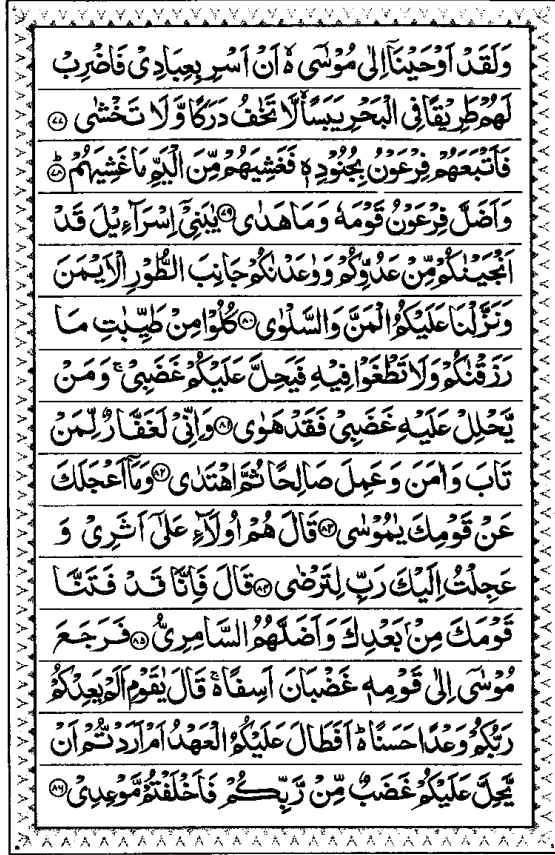 وَلَقَدْ اَوْحَيْنَاۤ اِلٰى مُوْسٰۤى ۙ اَنْ اَسْرِ بِعِبَادِىْ فَاضْرِبْ
لَهُمْ طَرِيْقًا فِى الْبَحْرِ يَبَسًا ۙ لَّا تَخٰفُ دَرَكًا وَّلَا تَخْشٰى ﴿۷۷﴾
فَاَتْبَعَهُمْ فِرْعَوْنُ بِجُنُوْدِهٖ فَغَشِيَهُمْ مِّنَ الْيَمِّ مَا غَشِيَهُمْ ؕ ﴿۷۸﴾
وَاَضَلَّ فِرْعَوْنُ قَوْمَهٗ وَمَا هَدٰى ﴿۷۹﴾ يٰبَنِىْۤ اِسْرَآءِيْلَ قَدْ
اَنْجَيْنٰكُمْ مِّنْ عَدُوِّكُمْ وَوٰعَدْنٰكُمْ جَانِبَ الطُّوْرِ الْاَيْمَنَ
وَنَزَّلْنَا عَلَيْكُمُ الْمَنَّ وَالسَّلْوٰى ﴿۸۰﴾ كُلُوْا مِنْ طَيِّبٰتِ مَا
رَزَقْنٰكُمْ وَلَا تَطْغَوْا فِيْهِ فَيَحِلَّ عَلَيْكُمْ غَضَبِىْ ۚ وَمَنْ
يَّحْلِلْ عَلَيْهِ غَضَبِىْ فَقَدْ هَوٰى ﴿۸۱﴾ وَاِنِّىْ لَغَفَّارٌ لِّمَنْ
تَابَ وَاٰمَنَ وَعَمِلَ صَالِحًا ثُمَّ اهْتَدٰى ﴿۸۲﴾ وَمَاۤ اَعْجَلَكَ
عَنْ قَوْمِكَ يٰمُوْسٰى ﴿۸۳﴾ قَالَ هُمْ اُولَآءِ عَلٰۤى اَثَرِىْ وَ
عَجِلْتُ اِلَيْكَ رَبِّ لِتَرْضٰى ﴿۸۴﴾ قَالَ فَاِنَّا قَدْ فَتَنَّا
قَوْمَكَ مِنْۢ بَعْدِكَ وَاَضَلَّهُمُ السَّامِرِىُّ ﴿۸۵﴾ فَرَجَعَ
مُوْسٰۤى اِلٰى قَوْمِهٖ غَضْبَانَ اَسِفًا ۬ۚ قَالَ يٰقَوْمِ اَلَمْ يَعِدْكُمْ
رَبُّكُمْ وَعْدًا حَسَنًا ؕ اَفَطَالَ عَلَيْكُمُ الْعَهْدُ اَمْ اَرَدْتُّمْ اَنْ
يَّحِلَّ عَلَيْكُمْ غَضَبٌ مِّنْ رَّبِّكُمْ فَاَخْلَفْتُمْ مَّوْعِدِىْ ﴿۸۶﴾